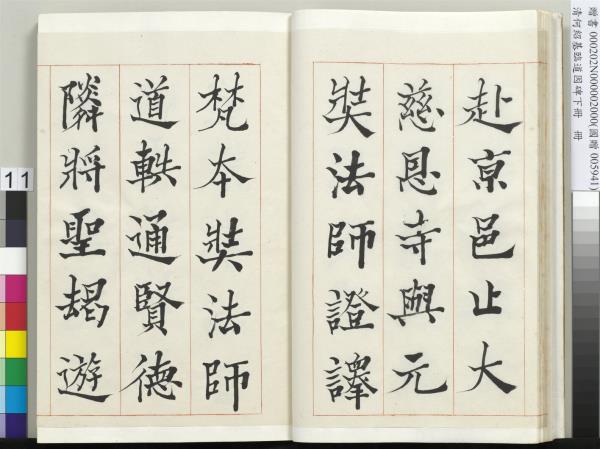 贈書 000202N000002000(國贈 005941)
清何紹基臨道因碑下冊 冊
赴亰邑止大
慈恩寺與元
奘法師證譯
梵本奘法師
道軼通賢德
隣將聖朅遊
11